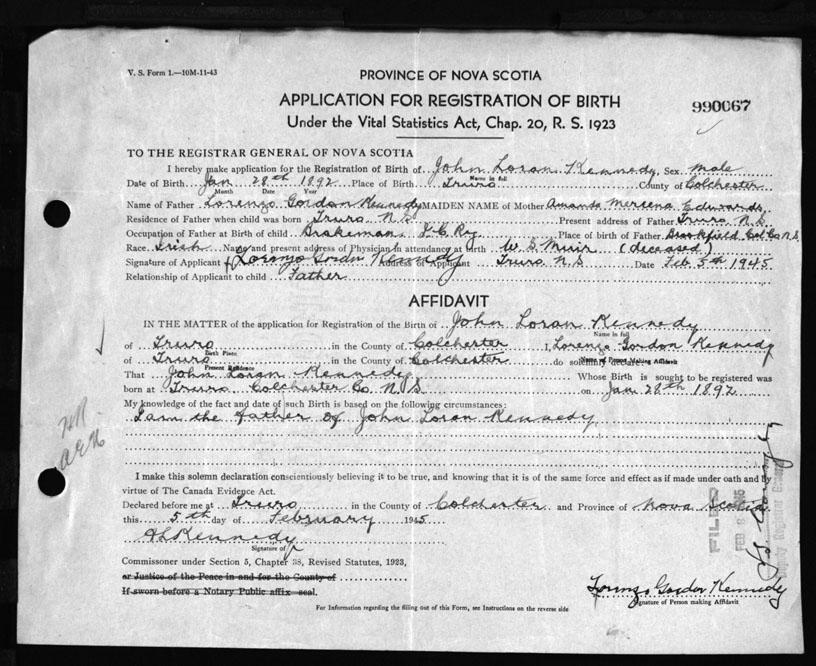 V. S. Form 1.—10M-11-43
PROVINCE OF NOVA SCOTIA
APPLICATION FOR REGISTRATION OF BIRTH
990067
Under the Vital Statistics Act, Chap. 20, R. S. 1923
TO THE REGISTRAR GENERAL OF NOVA SCOTIA
I hereby make application for the Registration of Birth of John Loran Kennedy Sex male
Name in full
Date of Birth Jan 28th 1892 Place of Birth Truro County of Colchester
Month Date Year
Name of Father Lorenzo Gordon Kennedy MAIDEN NAME of Mother Amanda Edwards
Residence of Father when child was born Truro N.S. Present address of Father Truro N.S.
Occupation of Father at Birth of child Brakeman Ry Place of birth of Father Brookfield Col Co N.S
Race Irish Name and present address of Physician in attendance at birth W. S. Muir (deceased)
Signature of Applicant Lorenzo Gordon Kennedy Address of Applicant Truro N.S Date Feb 5th 1945
Relationship of Applicant to child Father
AFFIDAVIT
IN THE MATTER of the application for Registration of the Birth of John Loran Kennedy
Name in full
of Truro in the County of Colchester I, Lorenzo Gordon Kennedy
Birth Place Name of Person Making Affidavit
of Truro in the County of Colchester do solemnly declare:
Present Residence
That John Loran Kennedy Whose Birth is sought to be registered was
born at Truro Colchester Co. N.S on Jan 28th 1892
My knowledge of the fact and date of such Birth is based on the following circumstances:
I am the father of John Loran Kennedy
I make this solemn declaration conscientiously believing it to be true, and knowing that it is of the same force and effect as if made under oath and by
virtue of The Canada Evidence Act.
Declared before me at Truro in the County of Colchester and Province of Nova Scotia
this 5th day of February 1945
Kennedy
Signature of
Commissioner under Section 5, Chapter 38, Revised Statutes, 1923,
or Justice of the Peace in and for the County of
If sworn before a Notary Public affix seal.
Lorenzo Gordon Kennedy
Signature of Person making Affidavit
For Information regarding the filling out of this Form, see Instructions on the reverse side
FILED
FEB 8
Deputy Registrar General